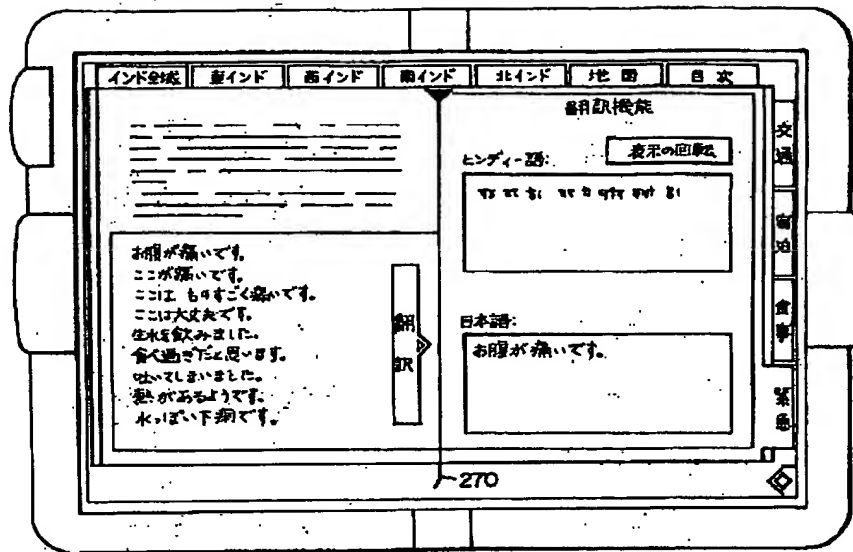 インド全域
東インド
西インド
南インド
北インド
地図
目次
翻訳機能
表示の回転
ヒンディー語:
お腹が痛いです。
ここが痛いです。
ここは ものすごく痛いです。
ここは大丈夫です。
生水を飲みました。
食べ過ぎだと思います。
吐いてしまいました。
熱があるようです。
水っぽい下痢です。
翻訳
日本語:
お腹が痛いです。
交通
宿泊
食事
緊急
270